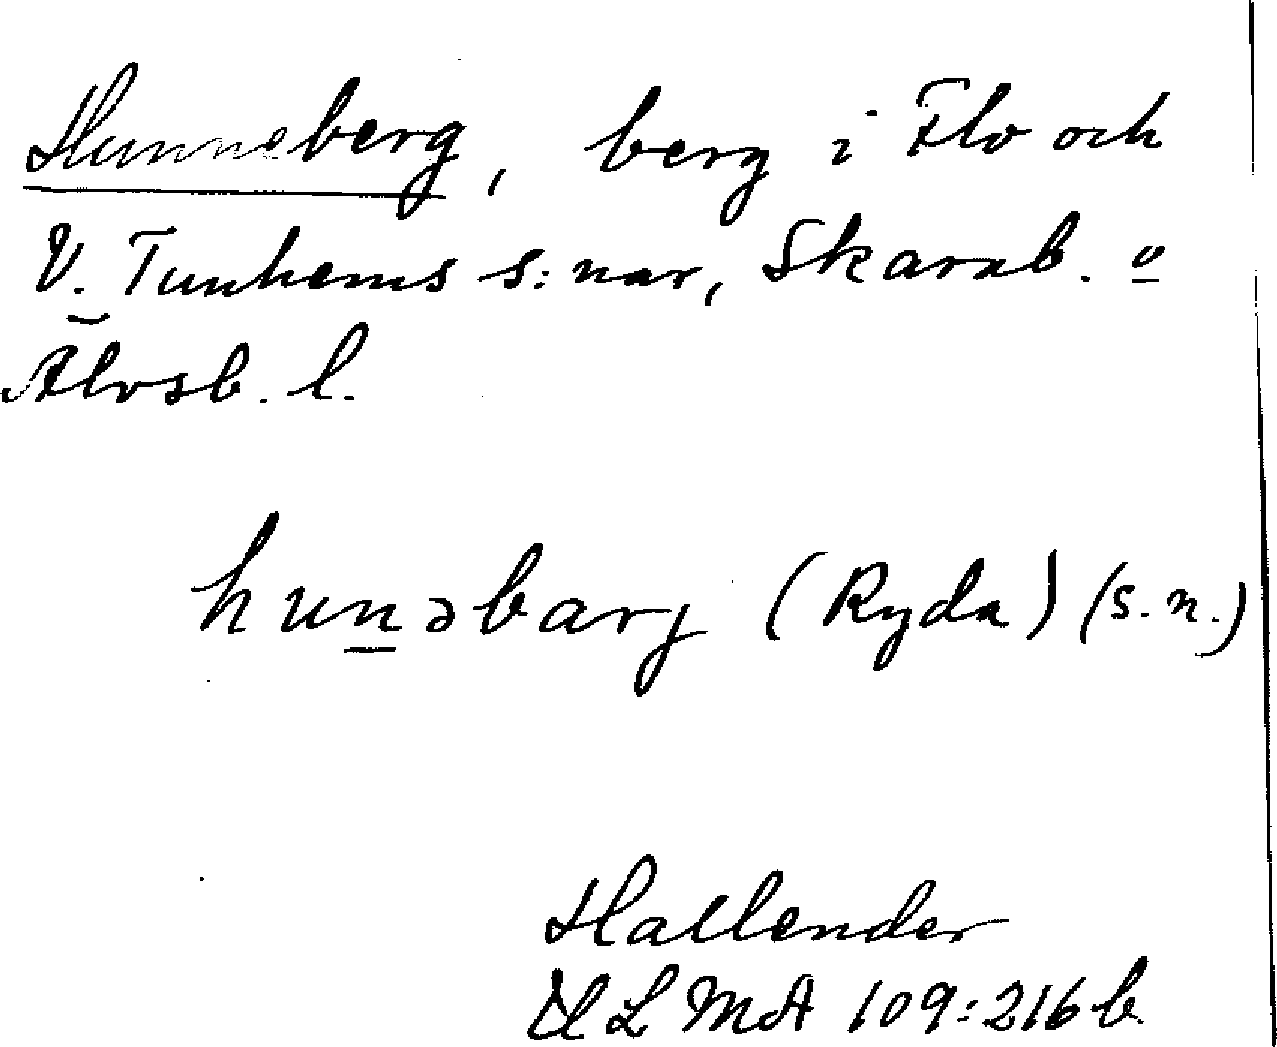 Hunneberg, berg i Flo och
V. Tunhems s:nar, Skarab. o
Älvsb. l.
hun̲əbarj (Ryda) (s.n.)
Hallender
ULMA 109:216 b